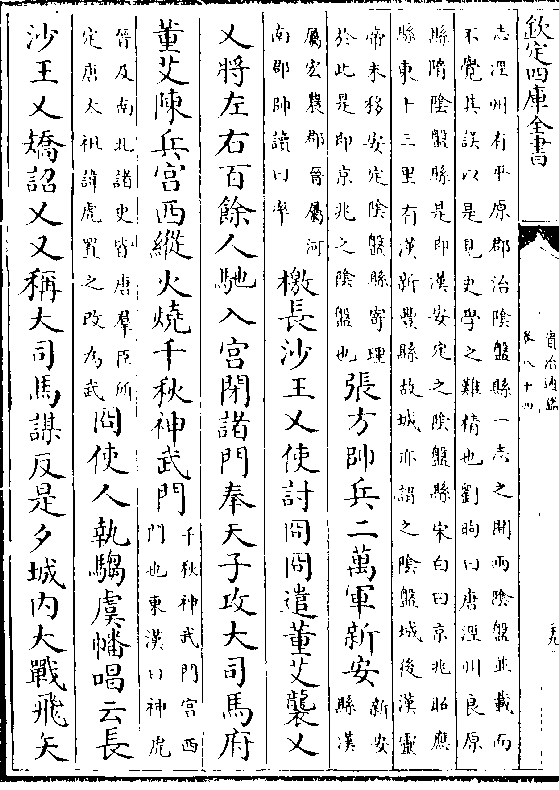 欽定四庫全書
資治通鑑
卷八十四
志涇州有平原郡治陰盤縣一志之間兩陰盤並載而
不覺其誤以是見史學之難精也劉昫曰唐涇州良原
縣隋陰盤縣是即漢安定之陰盤縣宋白曰京兆昭應
縣東十三里有漢新豐縣故城亦謂之陰盤城後漢靈
帝末移安定陰盤縣寄理
於此是即京兆之陰盤也
張方帥兵二萬軍新安
新安
縣漢
屬宏農郡晉屬河
南郡帥讀曰率
檄長沙王乂使討冏冏遣董艾襲乂
乂將左右百餘人馳入宮閉諸門奉天子攻大司馬府
董艾陳兵宮西縱火燒千秋神武門
千秋神武門宮西
門也東漢曰神虎
晉及南北諸史皆唐羣臣所
定唐太祖諱虎置之改為武
冏使人執騶虞幡唱云長
沙王乂矯詔乂又稱大司馬謀反是夕城內大戰飛矢